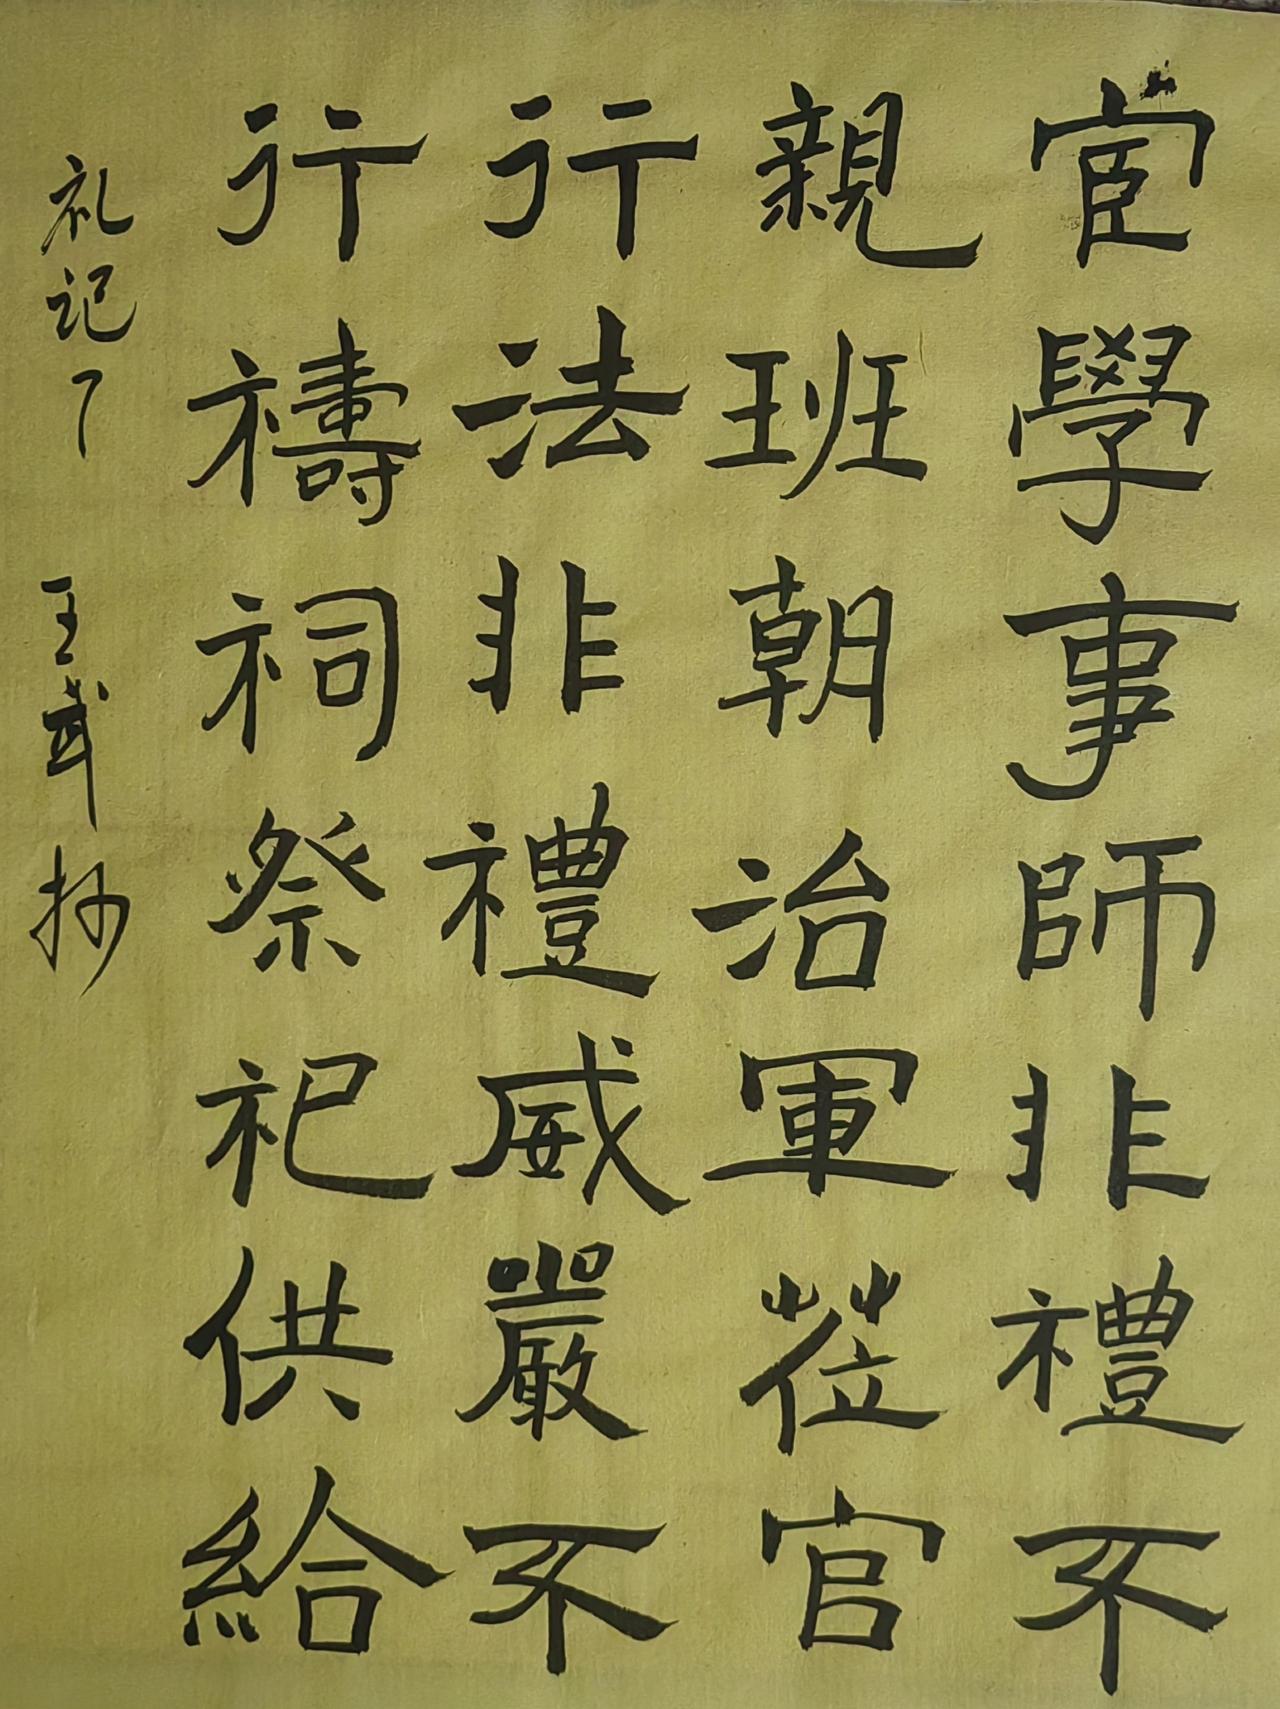 宦學事師非禮不
親班朝治軍莅官
行法非禮威嚴不
行禱祠祭祀供給
礼记了 王武抄